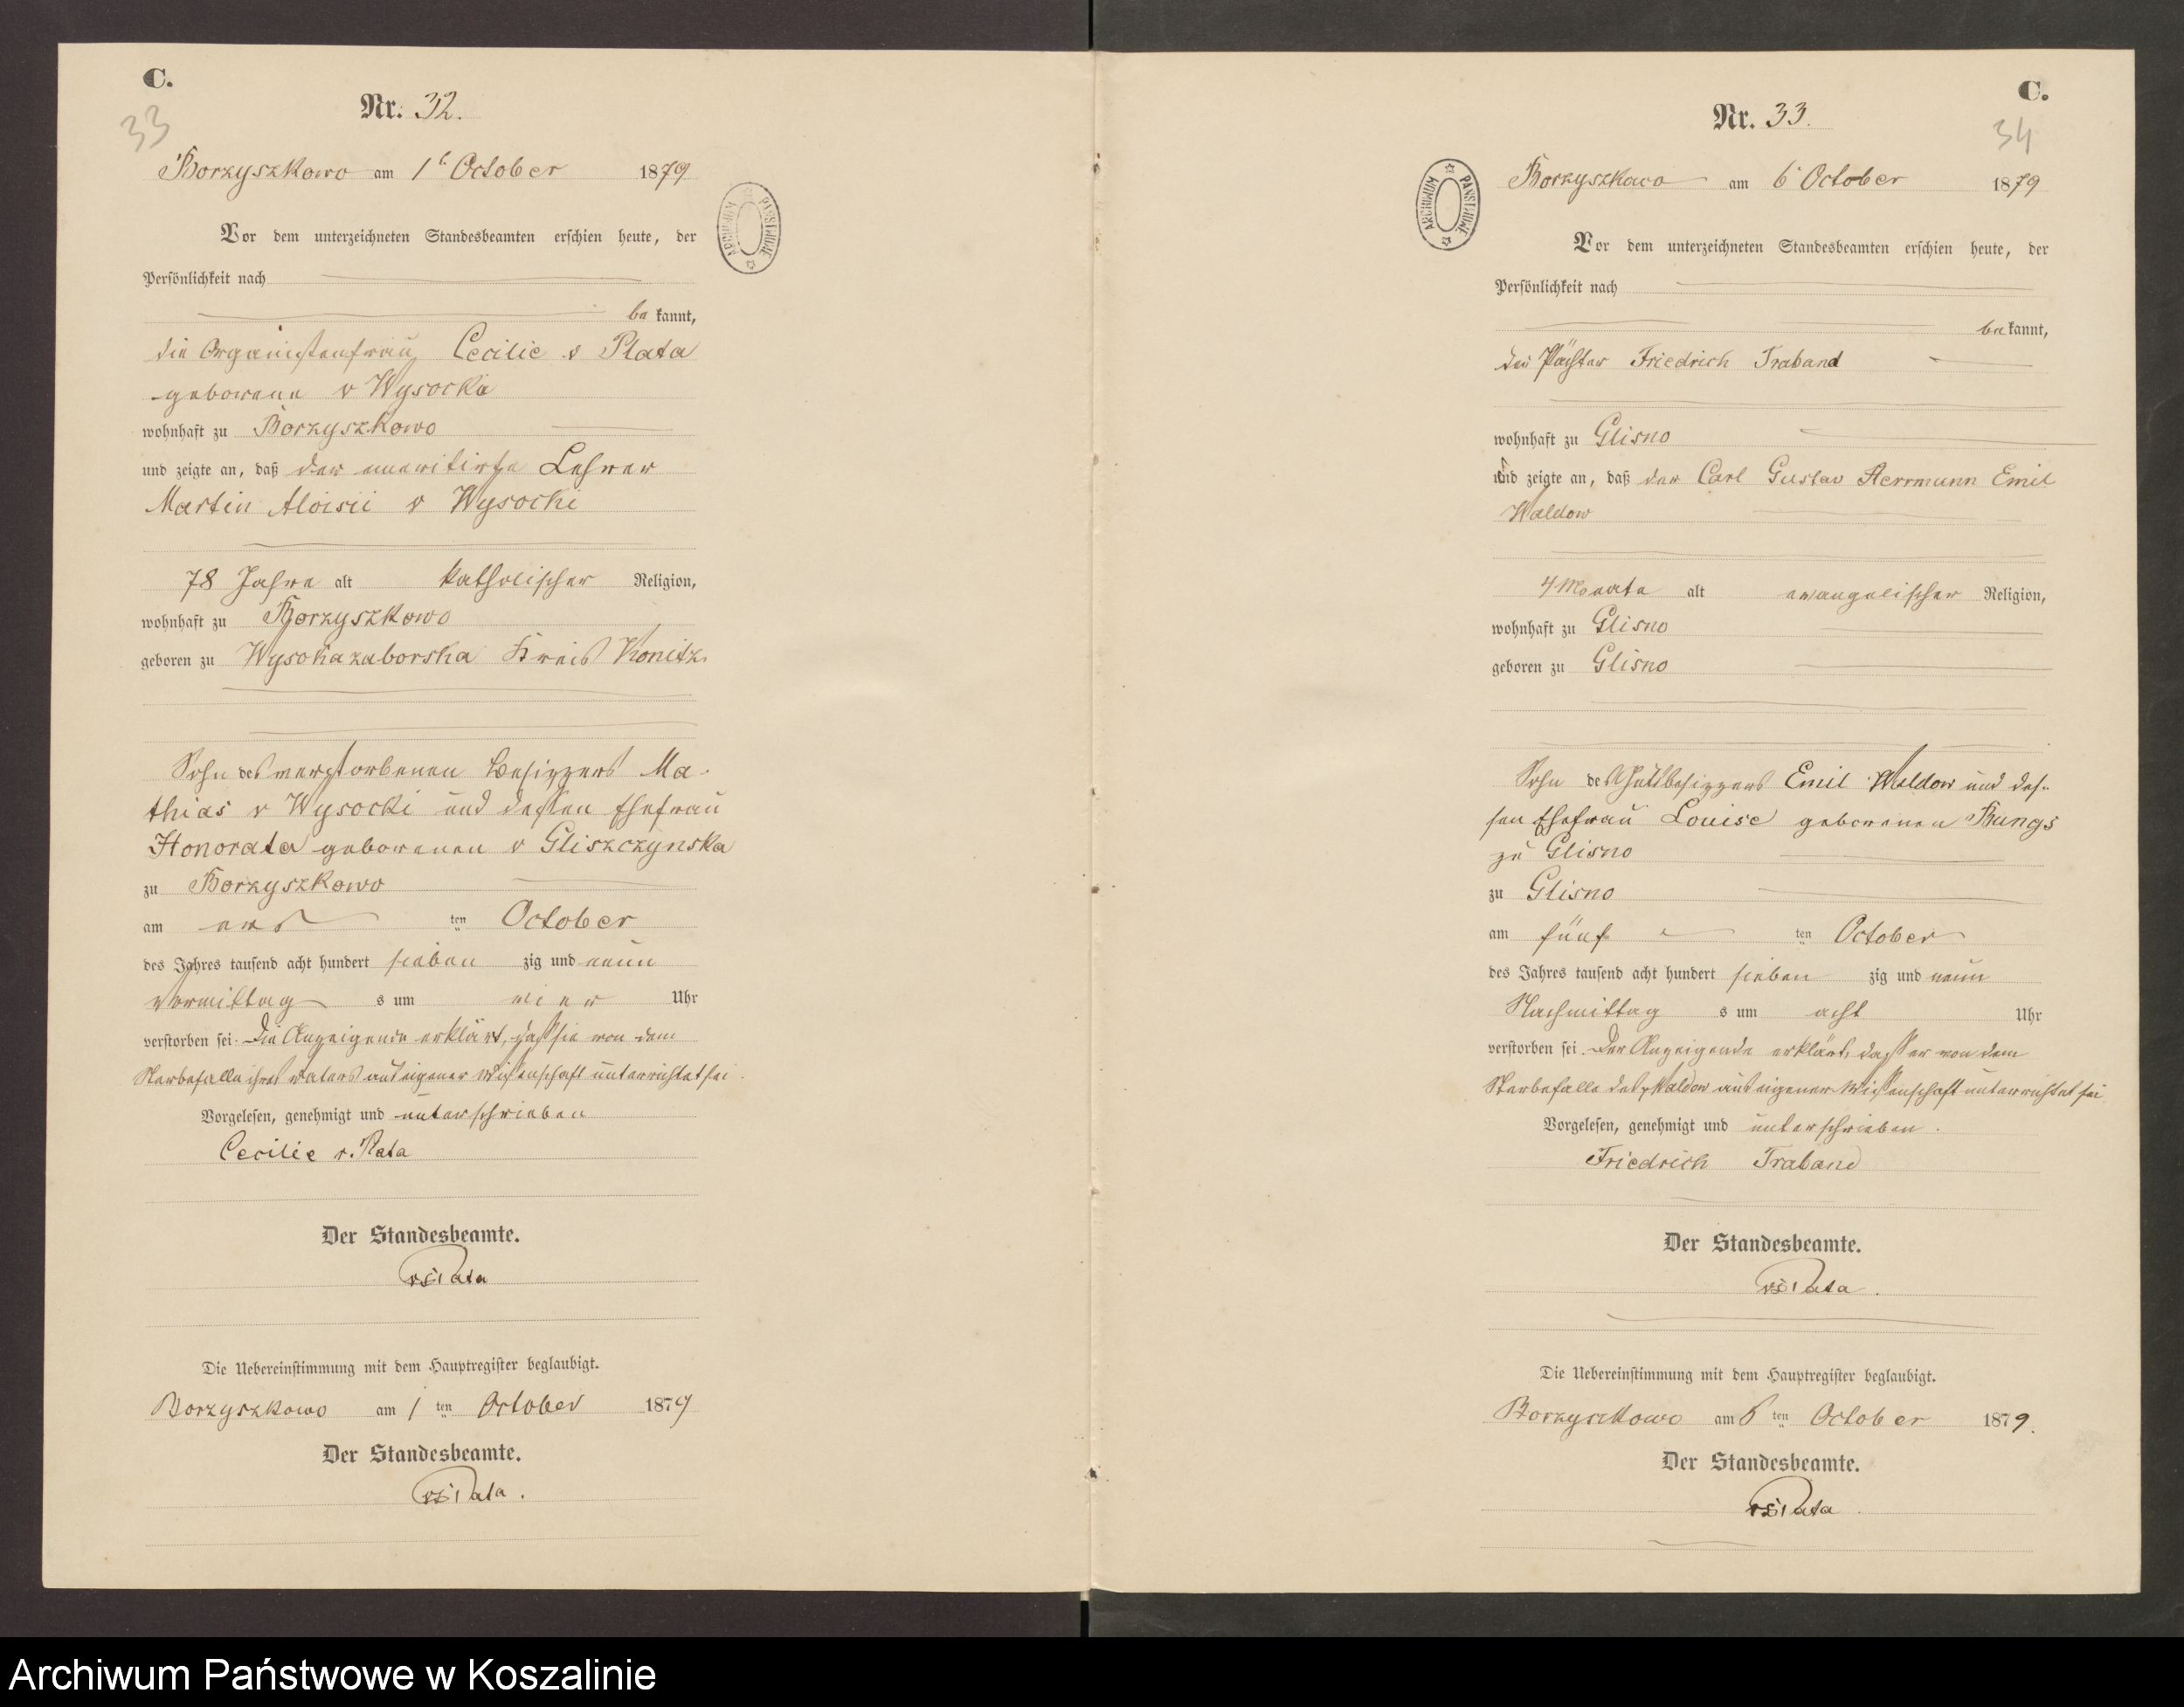 C.
33
Nr. 32.
Borzyszkowo am 1t October 1879
Vor dem unterzeichneten Standesbeamten erschien heute, der
Persönlichkeit nach
be kannt,
die Organistenfrau Cecilie v Plata
geborene v Wysocka
wohnhaft zu Borzyszkowo
und zeigte an, daß der emeritirte Lehrer
Martin Aloisii v Wysocki
78 Jahre alt katholischer Religion,
wohnhaft zu Borzyszkowo
geboren zu Wysokazaborska Kreis Konitz
Sohn des verstorbenen Besitzers Ma-
thias v Wysocki und dessen Ehefrau
Honorata geborenen v Gliszczynska
zu Borzyszkowo
am ers ten October
des Jahres tausend acht hundert sieben zig und neun
vormittag s um vier Uhr
verstorben sei. Die Anzeigende erklärt, daß sie von dem
Sterbefalle ihres Vaters aus eigener Wissenschaft unterrichtet sei.
Vorgelesen, genehmigt und unterschrieben
Cecilie v. Plata
Der Standesbeamte.
v Plata
Die Uebereinstimmung mit dem Hauptregister beglaubigt.
Borzyszkowo am 1 ten October 1879
Der Standesbeamte.
v Plata.
ARCHIWUM PAŃSTWOWE
C.
34
Nr. 33.
Borzyszkowo am 6t October 1879
Vor dem unterzeichneten Standesbeamten erschien heute, der
Persönlichkeit nach
be kannt,
der Pächter Friedrich Traband
wohnhaft zu Glisno
und zeigte an, daß der Carl Gustav Herrmann Emil
Waldow
4 Monate alt evangelischer Religion,
wohnhaft zu Glisno
geboren zu Glisno
Sohn des Gutsbesitzers Emil Waldow und des-
sen Ehefrau Louise geborenen Bungs
zu Glisno
zu Glisno
am fünf ten October
des Jahres tausend acht hundert sieben zig und neun
Nachmittag s um acht Uhr
verstorben sei. Der Anzeigende erklärt, daß er von dem
Sterbefalle des Waldow aus eigener Wissenschaft unterrichtet sei.
Vorgelesen, genehmigt und unterschrieben.
Friedrich Traband
Der Standesbeamte.
v Plata.
Die Uebereinstimmung mit dem Hauptregister beglaubigt.
Borzyszkowo am 6 ten October 1879.
Der Standesbeamte.
v Plata.
ARCHIWUM PAŃSTWOWE
Archiwum Państwowe w Koszalinie